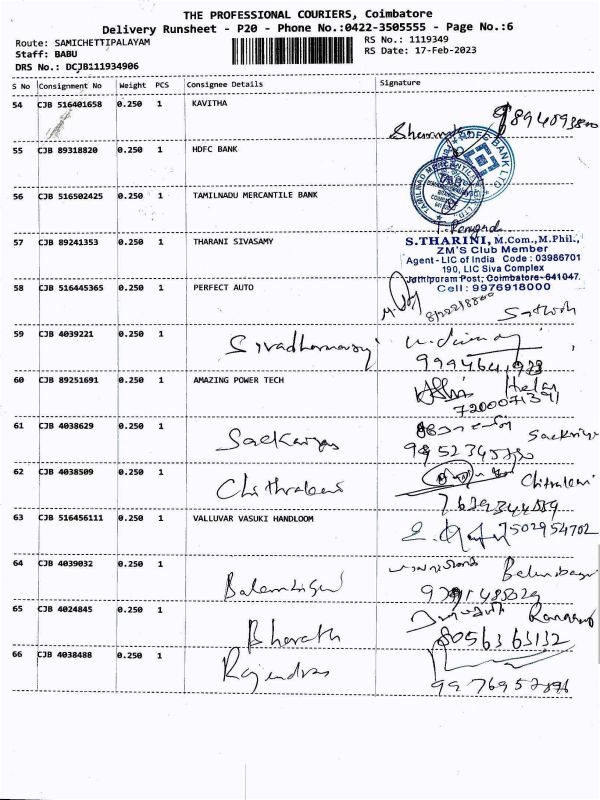 THE PROFESSIONAL COURIERS, Coimbatore
Delivery Runsheet - P20 - Phone No.:0422-3505555 - Page No.:6
Route: SAMICHETTIPALAYAM
Staff: BABU
DRS No.: DCJB111934906
RS No.: 1119349
RS Date: 17-Feb-2023
S No Consignment No Weight PCS Consignee Details Signature
54 CJB 516401658 0.250 1 KAVITHA
55 CJB 89318820 0.250 1 HDFC BANK
HDFC BANK LTD
56 CJB 516502425 0.250 1 TAMILNADU MERCANTILE BANK
TAMILNAD MERCANTILE
57 CJB 89241353 0.250 1 THARANI SIVASAMY
S.THARINI, M.Com.,M.Phil.,
ZM'S Club Member
Agent - LIC of India Code : 03986701
190, LIC Siva Complex
Jothipuram Post, Coimbatore-641047.
Cell : 9976918000
58 CJB 516445365 0.250 1 PERFECT AUTO
59 CJB 4039221 0.250 1
60 CJB 89251691 0.250 1 AMAZING POWER TECH
7200071391
61 CJB 4038629 0.250 1
62 CJB 4038509 0.250 1 Chithralani
63 CJB 516456111 0.250 1 VALLUVAR VASUKI HANDLOOM
7502954702
64 CJB 4039032 0.250 1
65 CJB 4024845 0.250 1 Bharath
8056363132
66 CJB 4038488 0.250 1 Rajendran